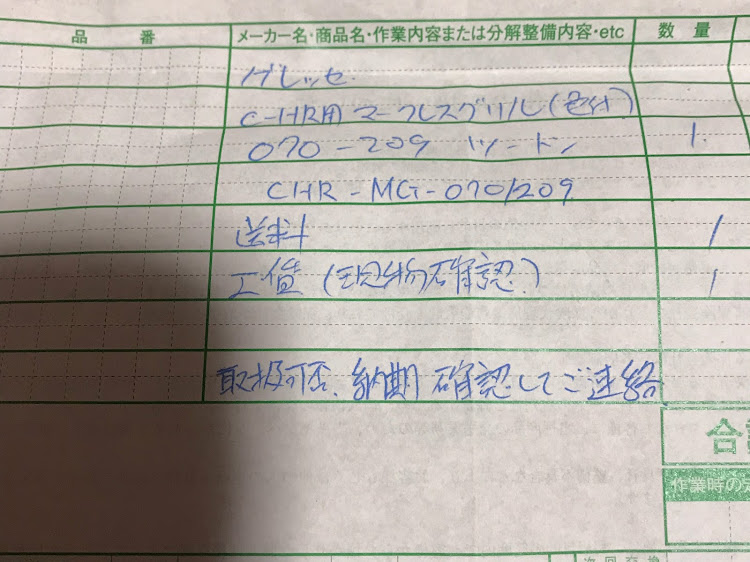 品 番 メーカー名・商品名・作業内容または分解整備内容・etc 数 量
グレッセ
C-HR用 マークレスグリル(色付)
070-209 ツートン 1.
CHR-MG-070/209
送料 1
工賃(現物確認) 1
取扱可否、納期 確認してご連絡
合
作業時の
次回交換